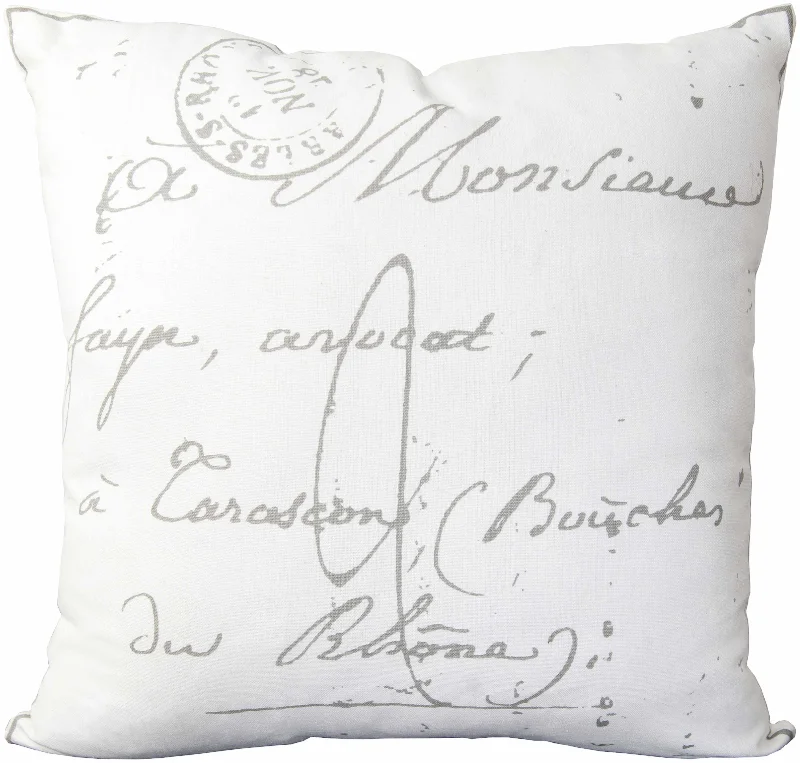 ARLES-S-RHO
1º NOV
À Monsieur
avocat ;
à Tarascon, (Bouches
du Rhône)